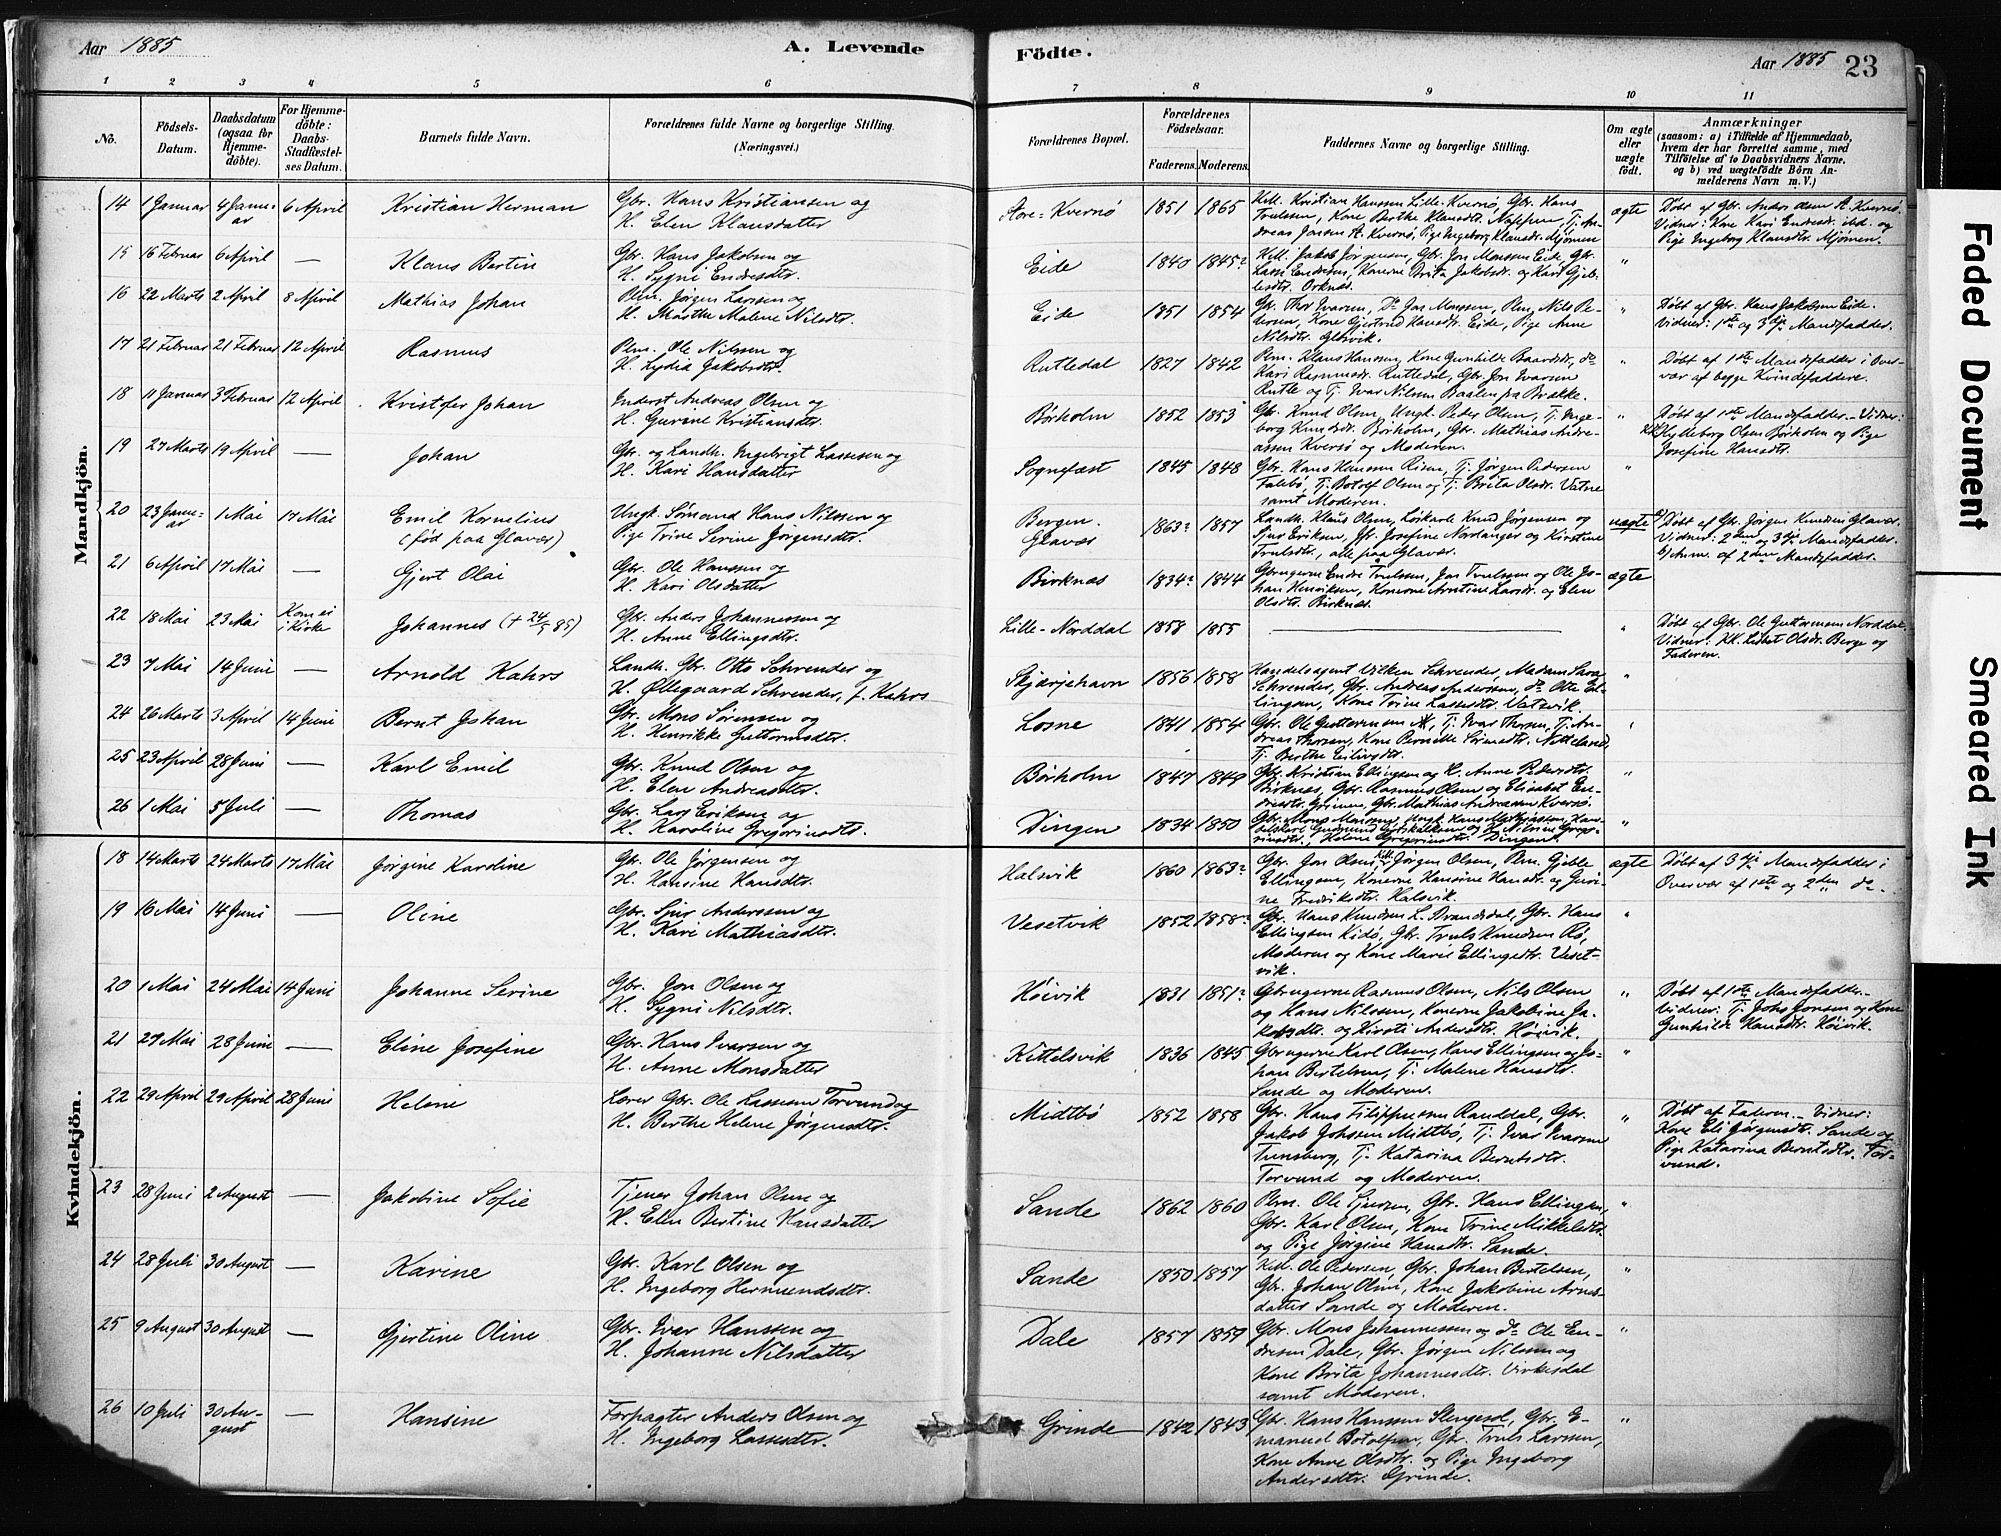 Aar 1885
A. Levende
Födte.
Aar 1885
23
1 2 3 4 5 6 7 8 9 10 11
No.
Födsels-
Datum.
Daabsdatum
(ogsaa for
Hjemme-
döbte).
For Hjemme-
döbte:
Daabs-
Stadfæstel-
ses Datum.
Barnets fulde Navn.
Forældrenes fulde Navne og borgerlige Stilling.
(Næringsvei.)
Forældrenes Bopæl.
Forældrenes
Födselsaar.
Faderens. Moderens.
Faddernes Navne og borgerlige Stilling.
Om ægte
eller
uægte
födt.
Anmærkninger
(saasom: a) i Tilfælde af Hjemmedaab,
hvem der har forrettet samme, med
Tilföielse af to Daabsvidners Navne,
og b) ved uægtefödte Börn An-
melderens Navn m. V.)
Mandkjön.
14 1 Januar 4 Janu-
ar 6 April Kristian Herman Gbr. Hans Kristiansen og
H. Elen Klausdatter
Store-Kvernø 1851 1865 Kell. Kristian Hanssen Lille-Kvernø, Gbr. Hans
Trulssen, Kone Berthe Klausdtr. Nappen, Tj. An-
dreas Jansen St. Kvernø, Pige Ingeborg Klausdtr. Mjømen
ægte Døbt af Gbr. Anders Olsen St. Kvernø.
Vidner: Kone Kari Endresdtr. ibd. og
Pige Ingeborg Klausdtr. Mjømen.
15 16 Februar 6 April — Klaus Bertin Gbr. Hans Jakobsen og
H. Sygni Endresdtr.
Eide 1840 1845? Kell. Jakob Jørgensen, Gbr. Jon Monssen Eide, Gbr.
Lasse Endresen, Konerne Brita Jakobsdr. og Kari Gjeb-
lesdtr. Orknæs.
"
16 22 Marts 2 April 8 April Mathias Johan Plm. Jørgen Larsen og
H. Marthe Malene Nilsdtr.
Eide 1851 1854 Gbr. Thor Ivarsen, Do Jon Monssen, Plm. Nils Pe-
tersen, Kone Gjertrud Hansdtr. Eide, Pige Anne
Nilsdtr. Glosvik.
Døbt af Gbr. Hans Jakobsen Eide.
Vidner: 1ste og 3die Mandsfadder.
17 21 Februar 21 Februar 12 April Rasmus Plm. Ole Nilssen og
H. Lydia Jakobsdtr.
Rutledal 1827 1842 Plm. Klaus Hanssen, Kone Gunhilde Baardsdr, do
Kari Rasmusdr. Rutledal, Gbr. Jon Ivarsen
Rutle og Tj. Ivar Nilssen Baalen fra Brække.
" Døbt af 1ste Mandsfadder i Over-
vær af begge Kvindefaddere.
18 11 Januar 3 Februar 12 April Kristofer Johan Inderst Andreas Olsen og
H. Gurine Kristiansdtr.
Børholm 1852 1853 Gbr. Knud Olsen, Ungk. Peder Olsen, Tj. Inge-
borg Knudsdr. Børholm, Gbr. Mathias Andre-
assen Kversø og Moderen.
" Døbt af 1ste Mandsfadder.– Vidner:
KK. Hylleborg Olsen Børholm og Pige
Josefine Hansdtr.
19 27 Marts 19 April — Johan Gbr. og Landh. Ingebrigt Lassesen og
H. Kari Hansdatter
Sognefæst 1845 1848 Gbr. Hans Hanssen Risen, Tj. Jørgen Pedersen
Falebø, Tj. Botolf Olsen og Tj. Brita Olsdr. Vatne
samt Moderen.
"
20 23 Janu-
ar 1 Mai 17 Mai Emil Kornelius
(fød paa Glavær) Ungk. Sømand Hans Nilssen og
Pige Trine Serine Jørgensdtr.
Bergen.
Glavær 1863? 1857 Landh. Klaus Olsen, Løskarle Knud Jørgensen og
Sjur Eriksen, Jfr. Josefine Nordanger og Kirstine
Trulsdtr., alle paa Glavær.
uægte a) Døbt af Gbr. Jørgen Knudsen Glavær.
Vidner: 2den og 3die Mandsfadder.
b) Anm. af 2den Mandsfadder.
21 6 April 17 Mai — Gjert Olai Gbr. Ole Hanssen og
H. Kari Olsdatter
Birknæs 1834? 1844 Gbrugerne Endre Trulssen, Jon Trulssen og Ole Jo-
han Henriksen, Konerne Arntine Larsdr. og Elen
Olsdtr. Birknæs.
ægte
22 18 Mai 23 Mai Kom ei
i Kirke Johannes (+ 24/5 85) Gbr. Anders Johannessen og
H. Anne Ellingsdtr.
Lille-Norddal 1858 1855 — " Døbt af Gbr. Ole Guttormsen Norddal.
Vidner: KK. Lisbet Olsdr. Berge og
Faderen.
23 7 Mai 14 Juni — Arnold Kahrs Landh. Gbr. Otto Schreuder og
H. Øllegaard Schreuder, f. Kahrs
Skjærjehavn 1856 1858 Handelsagent Wilken Schreuder, Madam Sara
Schreuder, Gbr. Andreas Anderssen, do Otte El-
lingsen, Kone Trine Lassesdtr. Vatsvik.
"
24 26 Marts 3 April 14 Juni Bernt Johan Gbr. Mons Sørensen og
H. Henrikke Guttormsdtr.
Losne 1841 1854 Gbr. Ole Guttormsen, Tj. Ivar Thorsen, Tj. An-
dreas Thorsen, Kone Pernille Sørensdtr. Natteland,
Tj. Berthe Eilivsdtr.
"
25 23 April 28 Juni — Karl Emil Gbr. Knud Olsen og
H. Elen Andreasdtter.
Børholm 1847 1849 Gbr. Kristian Ellingsen og H. Anne Pedersdtr.
Birknæs, Gbr. Rasmus Olsen og Elisabet En-
dresdtr. Grinen, Gbr. Mathias Andreassen Kversø.
"
26 1 Mai 5 Juli — Thomas Gbr. Lars Eriksen og
H. Karoline Gregoriusdtr.
Dingen 1834 1850 Gbr. Mons Monsen, Ungk. Hans Mathiassen, Han-
"
Kvindekjön.
18 14 Marts 24 Marts 17 Mai Jørgine Karoline Gbr. Ole Jørgensen og
H. Hansine Hansdtr.
Halsvik 1860 1863? Gbr. Jon Olsen, Kell. Jørgen Olsen, Plm. Gjeble
Ellingsen, Konerne Hansine Hansdr. og Guri-
ne Fredriksdtr. Halsvik.
ægte Døbt af 3die Mandsfadder i
Overvær af 1ste og 2den do.
19 16 Mai 14 Juni — Oline Gbr. Sjur Anderssen og
H. Kari Mathiasdtr.
Vesetvik 1852 1858? Gbr. Hans Knudsen L. Brandsdal, Gbr. Hans
Ellingsen Kidø, Gbr. Truls Knudsen Rø,
Moderen og Kone Marie Ellingsdtr. Veset-
vik.
"
20 1 Mai 24 Mai 14 Juni Johanne Serine Gbr. Jon Olsen og
H. Sygni Nilsdtr.
Høivik 1831 1851? Gbrugerne Rasmus Olsen, Nils Olsen
og Hans Nilssen, Konerne Jakobine Ja-
kobsdtr. og Kirsti Andersdtr. Høivik.
" Døbt af 1ste Mandsfadder.–
Vidner: Tj. Johs Jonsen og Kone
Gunhilde Hansdtr. Høivik.
21 27 Mai 28 Juni — Eline Josefine Gbr. Hans Ivarsen og
H. Anne Monsdatter
Kittelsvik 1836 1845 Gbrugerne Karl Olsen, Hans Ellingsen og Jo-
han Bertelsen, Tj. Malene Hansdtr.
Sande og Moderen.
"
22 29 April 29 April 28 Juni Helene Lærer Gbr. Ole Lassesen Torvund og
H. Berthe Helene Jørgensdtr.
Midtbø 1852 1858 Gbr. Hans Filippussen Randdal, Gbr.
Jakob Johsen Midtbø, Tj. Ivar Ivarsen
Tunsberg, Tj. Katarina Berntsdtr.
Torvund og Moderen.
" Døbt af Faderen.– Vidner:
Kone Eli Jørgensdtr. Sande og
Pige Katarina Berntsdtr. Tor-
vund.
23 28 Juni 2 August — Jakobine Sofie Tjener Johan Olsen og
H. Elen Bertine Hansdatter
Sande 1862 1860 Plm. Ole Sjursen, Gbr. Hans Ellingsen,
Gbr. Karl Olsen, Kone Trine Mikkelsdtr.
og Pige Jørgine Hansdtr. Sande.
"
24 28 Juli 30 August — Karine Gbr. Karl Olsen og
H. Ingeborg Hermundsdtr.
Sande 1850 1857 Kell. Ole Pedersen, Gbr. Johan Bertelsen,
Gbr. Johan Olsen, Kone Jakobine Arnes-
datter Sande og Moderen.
"
25 9 August 30 August — Gjertine Oline Gbr. Ivar Hanssen og
H. Johanne Nilsdatter
Dale 1857 1859 Gbr. Mons Johannessen og do Ole En-
dresen Dale, Gbr. Jørgen Nilssen og
Kone Brita Johannesdtr. Virkesdal
samt Moderen.
"
26 10 Juli 30 Au-
gust — Hansine Forpagter Anders Olsen og
H. Ingeborg Lassesdtr.
Grinde 1842 1843 Gbr. Hans Hanssen Stengesol, Gbr. E-
manuel Botolfsen, Gbr. Truls Larssen,
Kone Anne Olsdtr. og Pige Ingeborg
Andersdtr. Grinde.
"
Faded Document
Smeared Ink